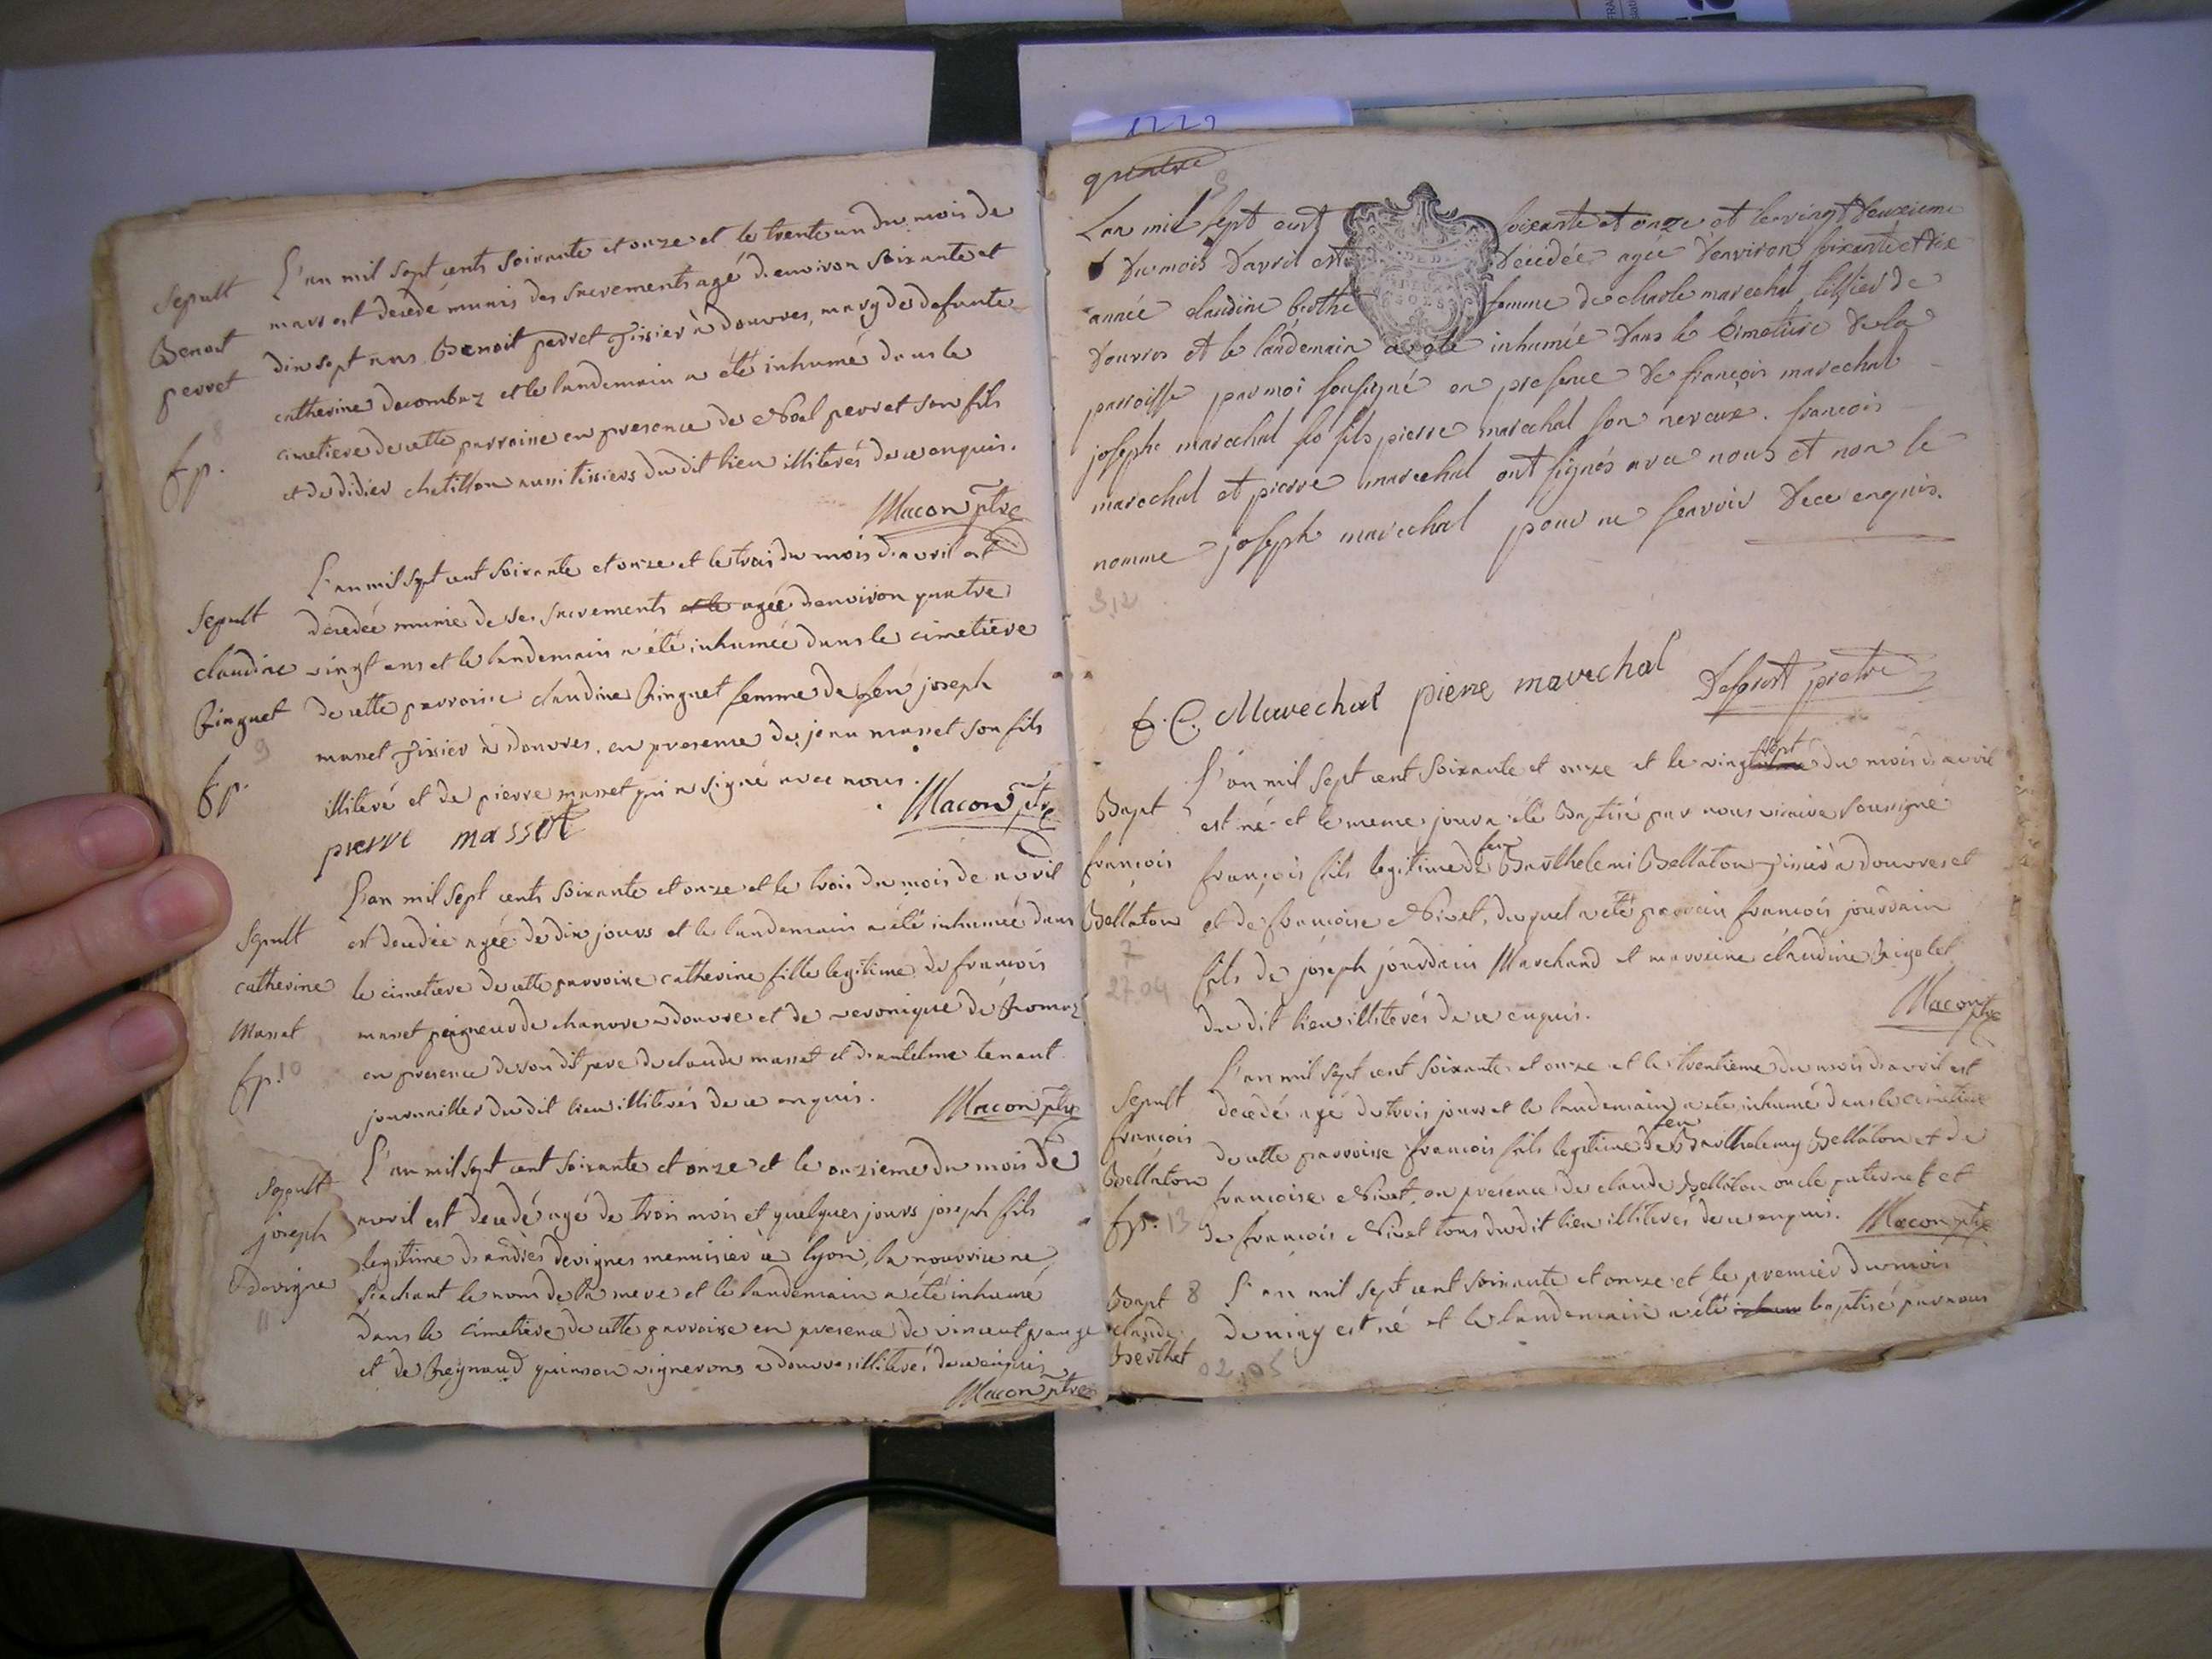 Sepult
Benoit
perret
fp.
8
L'an mil sept cents soixante et onze et le trente un du mois de
mars est decedé munis des sacrements agé d'environ soixante et
dix sept ans Benoit perret Tissier à douvres, mary de defunte
catherine decombaz et le landemain a été inhumé dans le
cimetiere de cette parroisse en presence de Noel perret son fils
et de didier chatillon aussi tissiers du dit lieu illiterés de ce enquis.
Macon ptre
Sepult
claudine
Ringuet
9
fp.
L'an mil sept cent soixante et onze et le trois du mois d'avril est
decedée munie de ses sacrements et le agée d'environ quatre
vingt ans et le landemain a été inhumée dans le cimetiere
de cette parroisse claudine Ringuet femme de feu joseph
masset Tissier à douvres, en presence de jean masset son fils
illiteré et de pierre masset qui a signé avec nous.
pierre massot
Macon ptre
Sepult
catherine
Masset
fp. 10
L'an mil sept cents soixante et onze et le trois du mois de avril
est decedée agée de dix jours et le landemain a été inhumée dans
le cimetiere de cette parroisse catherine fille legitime de francois
masset peigneur de chanvre a douvre et de veronique de
en presence de son dit pere de claude masset et d'antelme tenant
journallier du dit lieu illiterés de ce enquis.
Macon ptre
Sepult
joseph
Devigne
11
L'an mil sept cent soixante et onze et le onzieme du mois de
avril est decedé agé de trois mois et quelques jours joseph fils
legitime d'andré devignes menuisier a lyon, la nourrice ne
scachant le nom de la mere et le landemain a été inhumé
dans le cimetiere de cette parroisse en presence de vincent
et de Reynaud quinson vignerons a douvres illiterés de ce enquis
Macon ptre
1771
quatre
S
L'an mil sept cent soixante et onze et le vingt deuxieme
du mois d'avril est décédée agée d'environ soixante et dix
année claudine berthe femme de charle marechal tissier de
douvres et le landemain a été inhumée dans le cimetiere de la
parroisse par moi sousigné en presence de françois marechal
joseph marechal so fils pierre marechal son neveux. francois
marechal et pierre marechal ont signés avec nous et non le
nomme joseph marechal pour ne scavoir de ce enquis.
S,12
f. C. Marechal pierre marechal Defort pretre
Bapt
francois
Bellaton
7
27 04
L'an mil sept cent soixante et onze et le vingt sept du mois d'avril
est né et le meme jour a été Baptisé par nous vicaire soussigné
françois fils legitime de feu Barthelemi Bellaton Tissier a douvres et
et de francoise Nivet, du quel a été parrain francois jourdain
fils de joseph jourdain Marchand et marreine claudine Rigolet
du dit lieu illiterés de ce enquis.
Macon ptre
Sepult
francois
Bellaton
fp. 13
L'an mil sept cent soixante et onze et le trentieme du mois d'avril est
decedé agé de trois jours et le landemain a été inhumé dans le cimetiere
de cette parroisse francois fils legitime de feu Barthelemy Bellaton et de
francoise Nivet, en presence de claude Bellaton oncle paternel et
de francois Nivet tous du dit lieu illiterés de ce enquis. Macon ptre
Bapt 8
claude
Berthet
02,05
L'an mil sept cent soixante et onze et le premier du mois
de may est né et le landemain a été inhum baptisé par nous